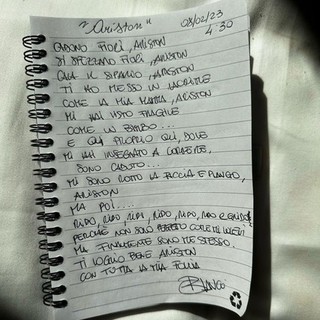 "Ariston"
08/02/23
4:30
CADONO FIORI, ARISTON
SI SPEZZANO FIORI, ARISTON
CALA IL SIPARIO, ARISTON
TI HO MESSO IN LACRIME
COME LA MIA MAMMA, ARISTON
MI HAI VISTO FRAGILE
COME UN BIMBO...
E QUI PROPRIO QUI, DOVE
MI HAI INSEGNATO A CORRERE,
SONO CADUTO...
MI SONO ROTTO LA FACCIA E PIANGO,
ARISTON
MA POI....
RIDO, RIDO, RIDO, RIDO, RIDO, RIDO E GRIDO
PERCHÉ NON SONO PERFETTO COME MI VOLEVI
MA FINALMENTE SONO ME STESSO.
TI VOGLIO BENE ARISTON
CON TUTTA LA MIA FOLLIA
BLANCO